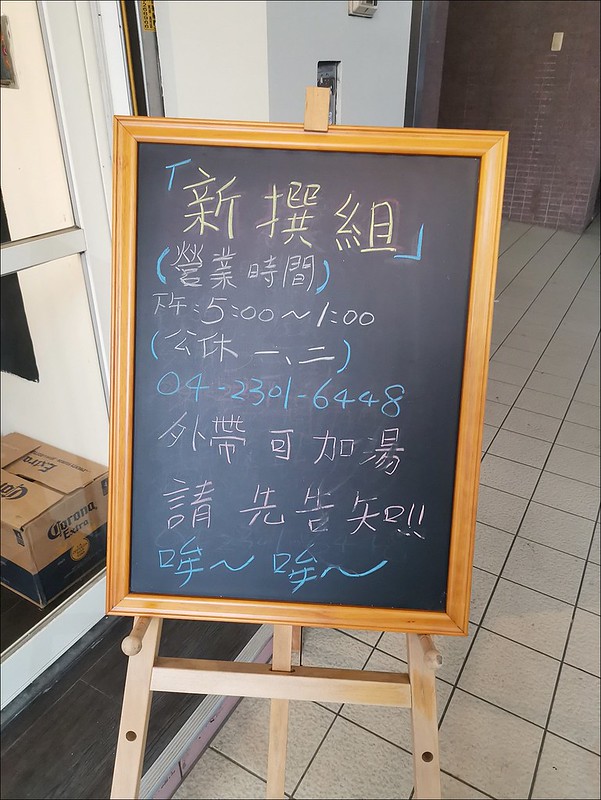 「新撰組」
(營業時間)
下午:5:00～1:00
(公休 一、二)
04-2301-6448
外帶可加湯
請先告知!!
哞～哞～
Extra
Corona
Extra